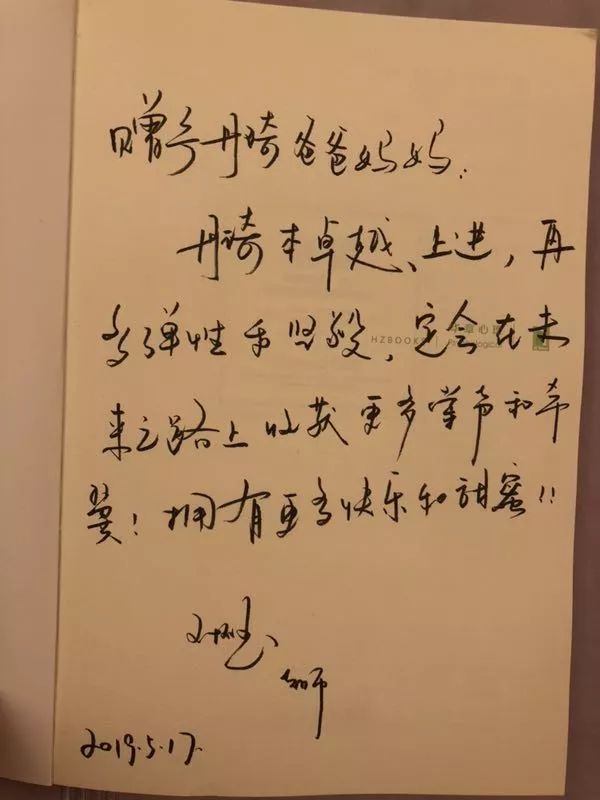 赠予丹琦爸爸妈妈:
丹琦本卓越、上进，再
多弹性和坚毅，定会在未
来之路上收获更多掌声和希
冀！拥有更多快乐和甜蜜!!
HZBOOKS
2019.5.17.